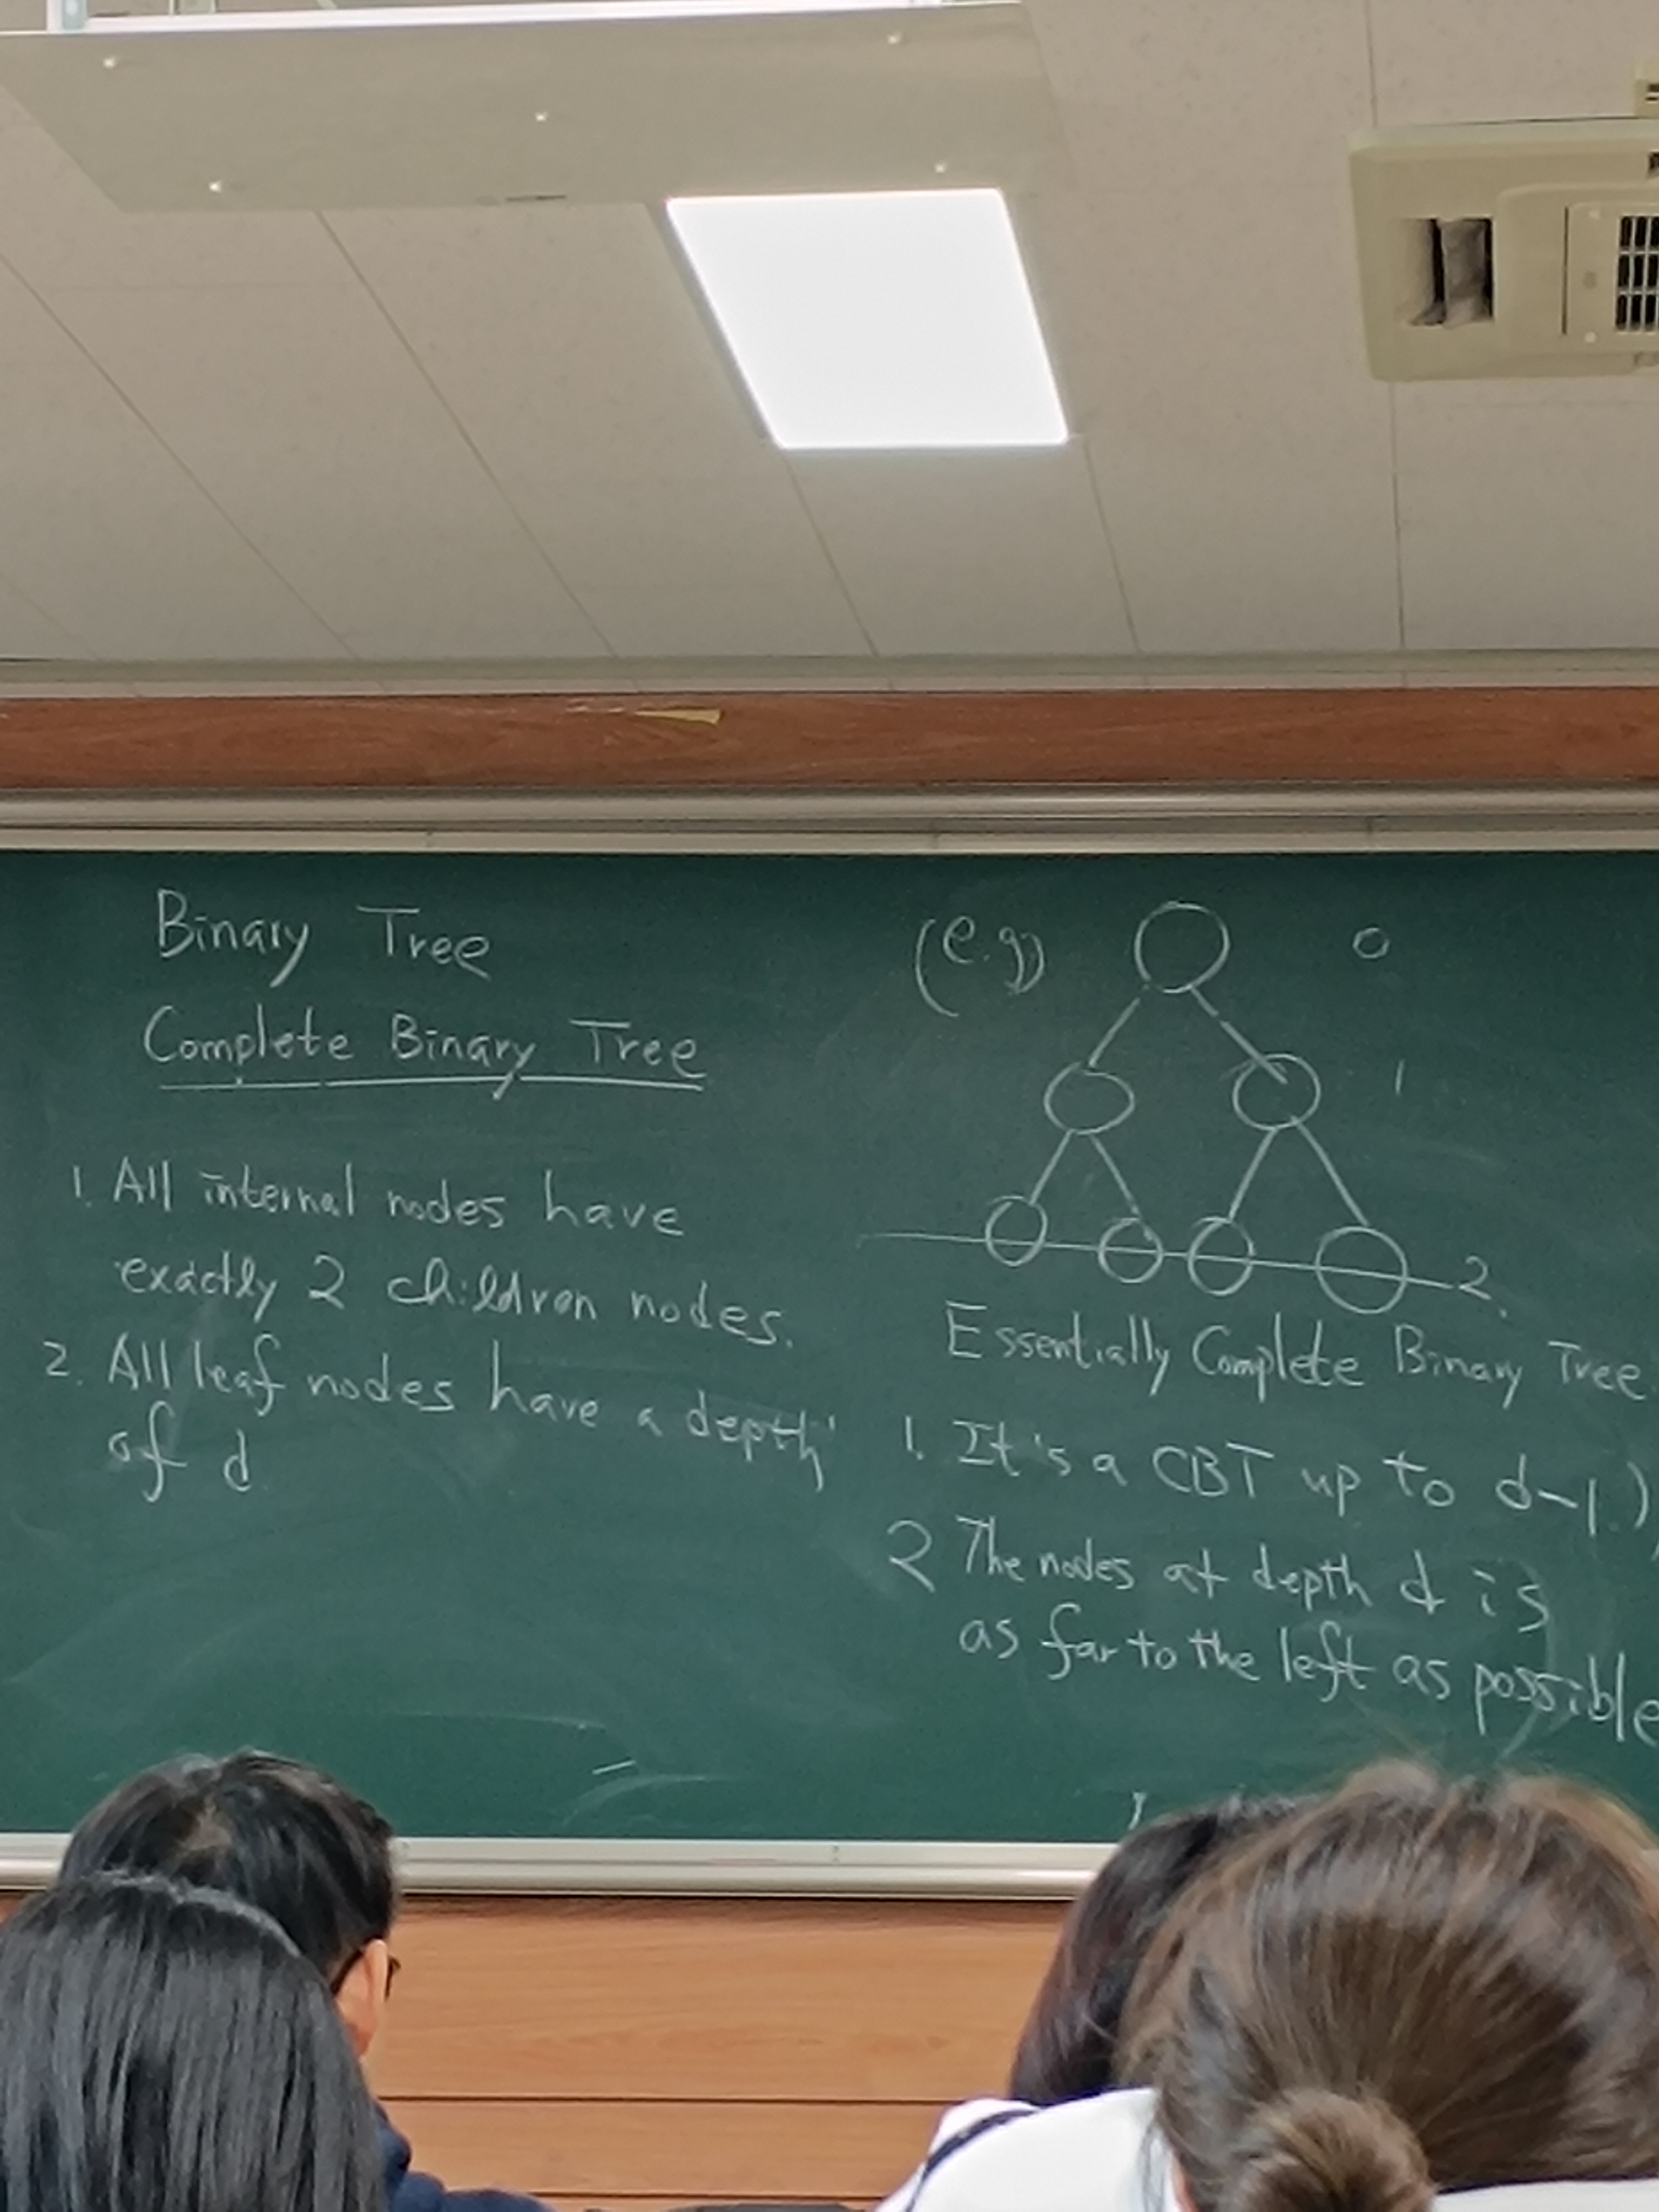 Binary Tree
Complete Binary Tree
1. All internal nodes have
exactly 2 children nodes.
2. All leaf nodes have a depth
of d
(e.g)
0
1
2
Essentially Complete Binary Tree
1. It's a CBT up to d-1.)
2 The nodes at depth d is
as far to the left as possible